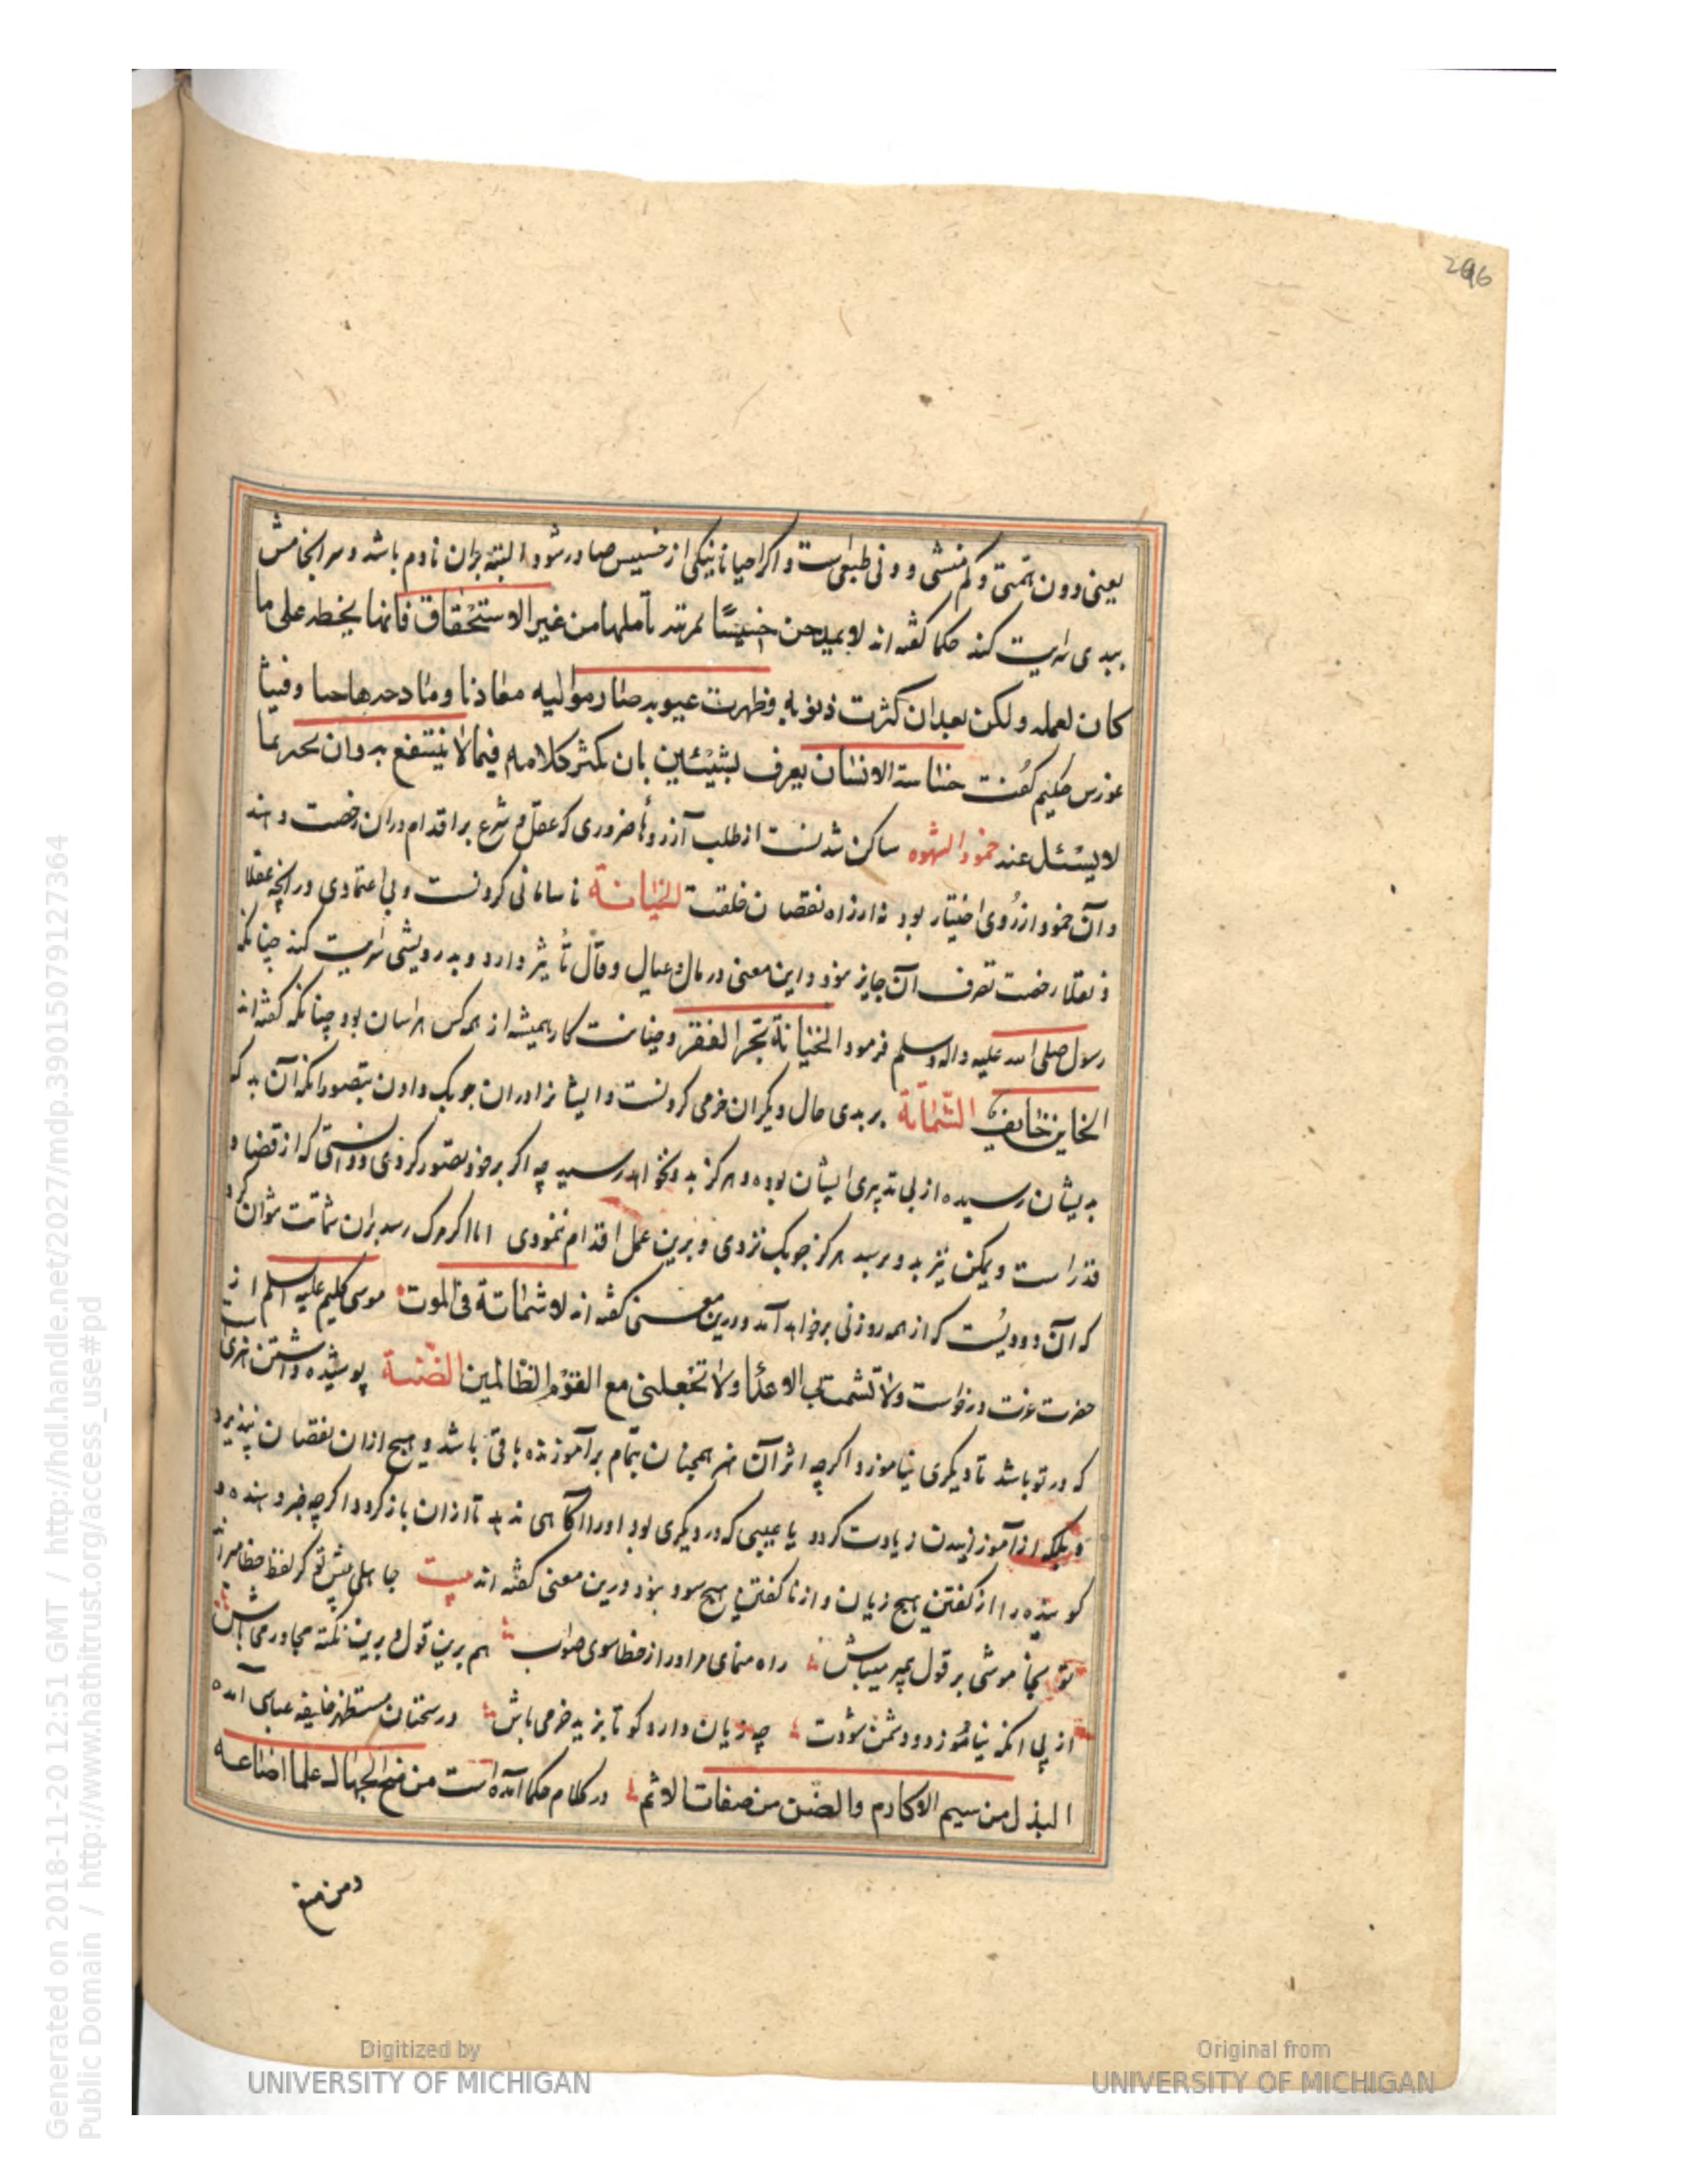 296
یعنی دون همتی و کم منشی و دنی طبعی است و اکر احیانا نیکی از خسیس صادر شود البته بران نادم باشد و سرانجامش
ببدی سرایت کند حکما گفته اند لا یمدحن خسیسًا لمرتبة نأملها من غیر الاستحقاق فانها یخطه علی ما
کان لعمله ولکن بعد ان کثرت ذنوبه وظهرت عیوبه صار موالیه معادنا ومادحه هاجیا وفیثا
غورس حکیم کفت خساسة الانسان یعرف بشیئین بان یکثر کلامه فیما لا ینتفع به وان یخبر بما
لا یسئل عنه خمود الشهوه ساکن شدنست از طلب آرزوها ضروری که عقل و شرع بر اقدام دران رخصت دهند
و آن خمود از روی اختیار بود نه از راه نقصان خلقت الخیانة ناسامانی کردنست و بی اعتمادی در آنچه عقلا
و نقلا رخصت تصرف آن جایز نبود و این معنی در مال و عیال و قال تأثیر دارد و بدرویشی سرایت کند چنانکه
رسول صلی الله علیه واله وسلم فرمود الخیانة تجر الفقر و خیانت کار همیشه از همه کس هراسان بود چنانکه کفته اند
الخاین خائف الشماتة بر بدی حال دیکران خرمی کردنست و ایشانرا دران چوبک دادن بتصور انکه آن بد که
بدیشان رسیده از بی تدبیری ایشان بوده و هرکز بدو نخواهد رسید چه اکر بر خود تصور کردی و دانستی که از قضا و
قدر است و یمکن نیز بدو برسد هرکز چوبک نزدی و برین عمل اقدام ننمودی اما اکر مرک رسد بران شماتت نتوان کرد
که آن دردیست که از همه روزنی برخواهد آمد و درین معنی کفته اند لا شماتة فی الموت موسی کلیم علیه السلم از
حضرت عزت درخواست ولا تشمت بی الاعدا ولا تجعلنی مع القوم الظالمین الضنة پوشیده داشتن هنری
که در تو باشد تا دیکری نیاموزد اکرچه اثر آن هنر همچنان بتمام بر آموزنده باقی باشد و هیچ ازان نقصان نپذیرد
و بلکه از آموزانیدن زیادت کردد یا عیبی که در دیکری بود او را آکاهی ندهد تا ازان باز کردد اکرچه خبر دهنده و
کوینده را از کفتن هیچ زیان و از ناکفتن هیچ سود نبود و درین معنی کفته اند بیت جاهلی پیش تو کر لفظ خطا میراند
تو بخاموشی بر قول میباش راه نمای مر او را از خطا سوی صواب هم برین قول و برین نکته مجاور می باش
از پی انکه نیاموزد و دشمن شودت چه زیان دارد کو تا بزید خرمی باش در سخنان مستظهر خلیفه عباسی آمده
البذل من سیم الاکارم والضن من صفات الائم در کلام حکما آمده است من منح الجهال علما اضاعه
ومن منع
Generated on 2018-11-20 12:51 GMT / http://hdl.handle.net/2027/mdp.39015079127364
Public Domain / http://www.hathitrust.org/access_use#pd
Digitized by
UNIVERSITY OF MICHIGAN
Original from
UNIVERSITY OF MICHIGAN